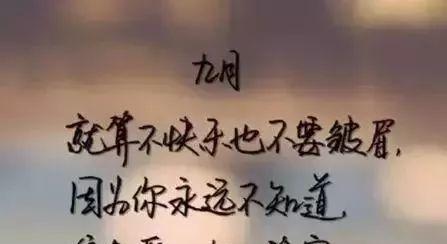 九月
就算不快乐也不要皱眉,
因为你永远不知道,